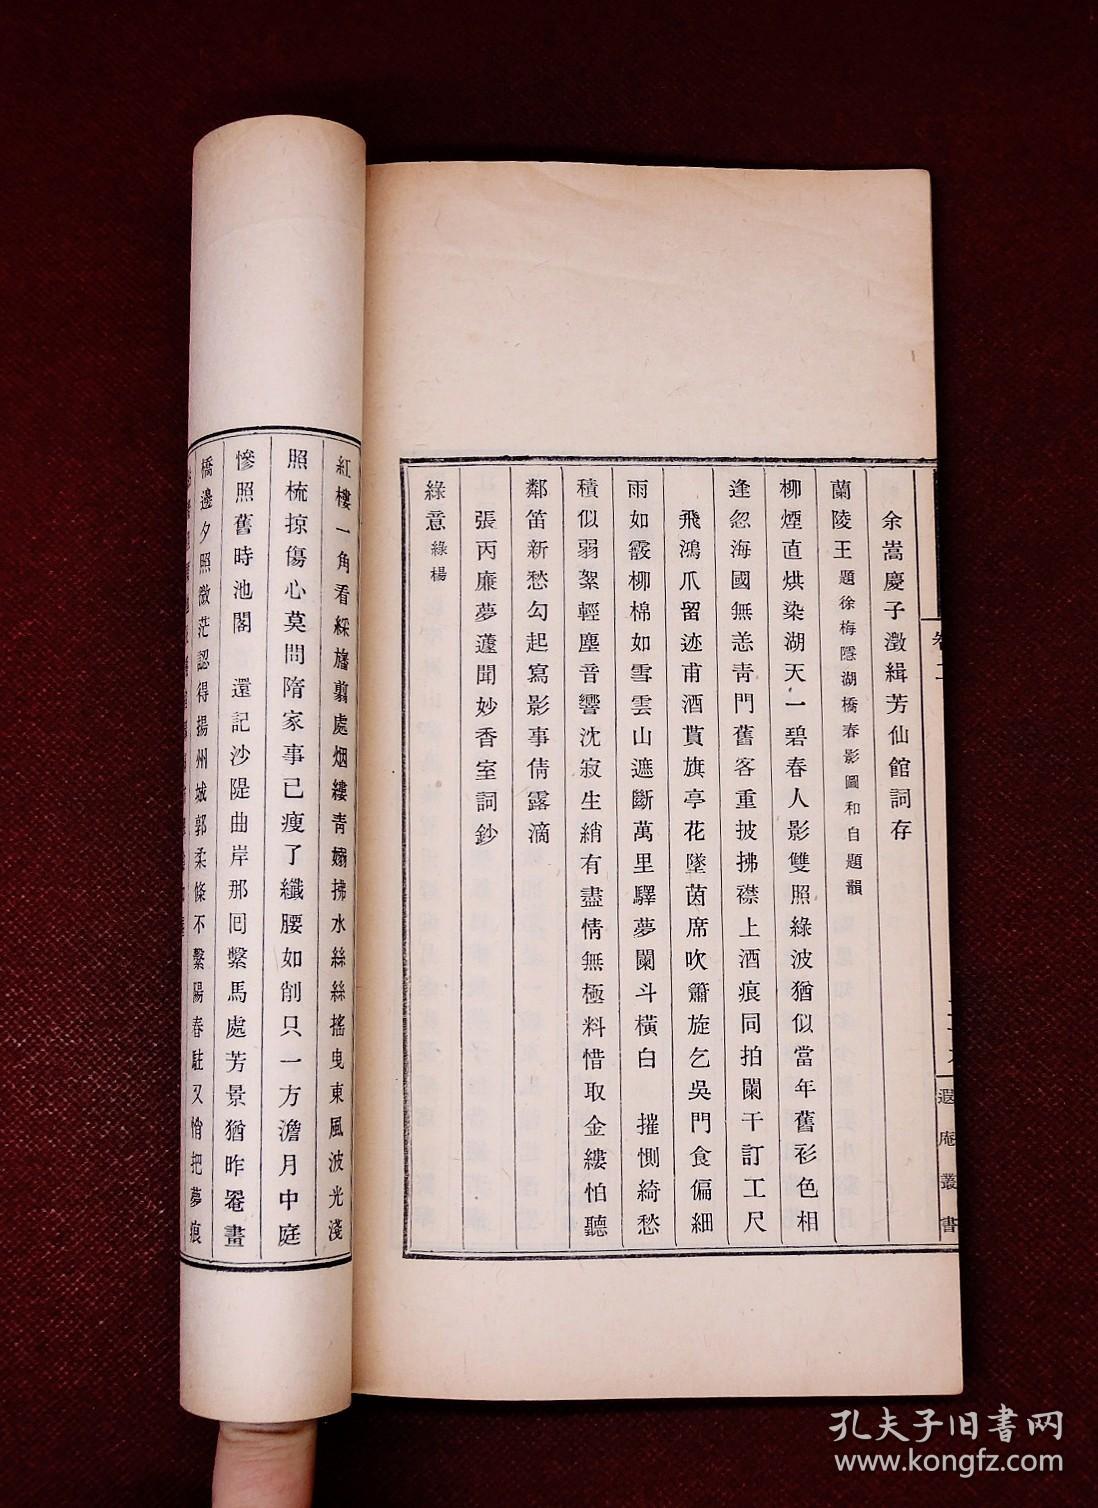 余嵩慶子澂緝芳仙館詞存
蘭陵王題徐梅隱湖橋春影圖和自題韻
柳煙直烘染湖天一碧春人影雙照綠波猶似當年舊衫色相
逢忽海國無恙靑門舊客重披拂襟上酒痕同拍闌干訂工尺
飛鴻爪留迹甫酒貰旗亭花墜茵席吹簫旋乞吳門食偏細
雨如霰柳棉如雪雲山遮斷萬里驛夢闌斗橫白　摧惻綺愁
積似弱絮輕塵音響沈寂生綃有盡情無極料惜取金縷怕聽
鄰笛新愁勾起寫影事倩露滴
張丙廉夢蘧聞妙香室詞鈔
綠意綠楊
紅樓一角看綵旛翦處烟縷靑嫋拂水絲絲搖曳東風波光淺
照梳掠傷心莫問隋家事已瘦了纖腰如削只一方澹月中庭
慘照舊時池閣　還記沙隄曲岸那囘繫馬處芳景猶昨罨畫
橋邊夕照微茫認得揚州城郭柔條不繫陽春駐又悄把夢痕
遐庵叢書
孔夫子旧書网
www.kongfz.com